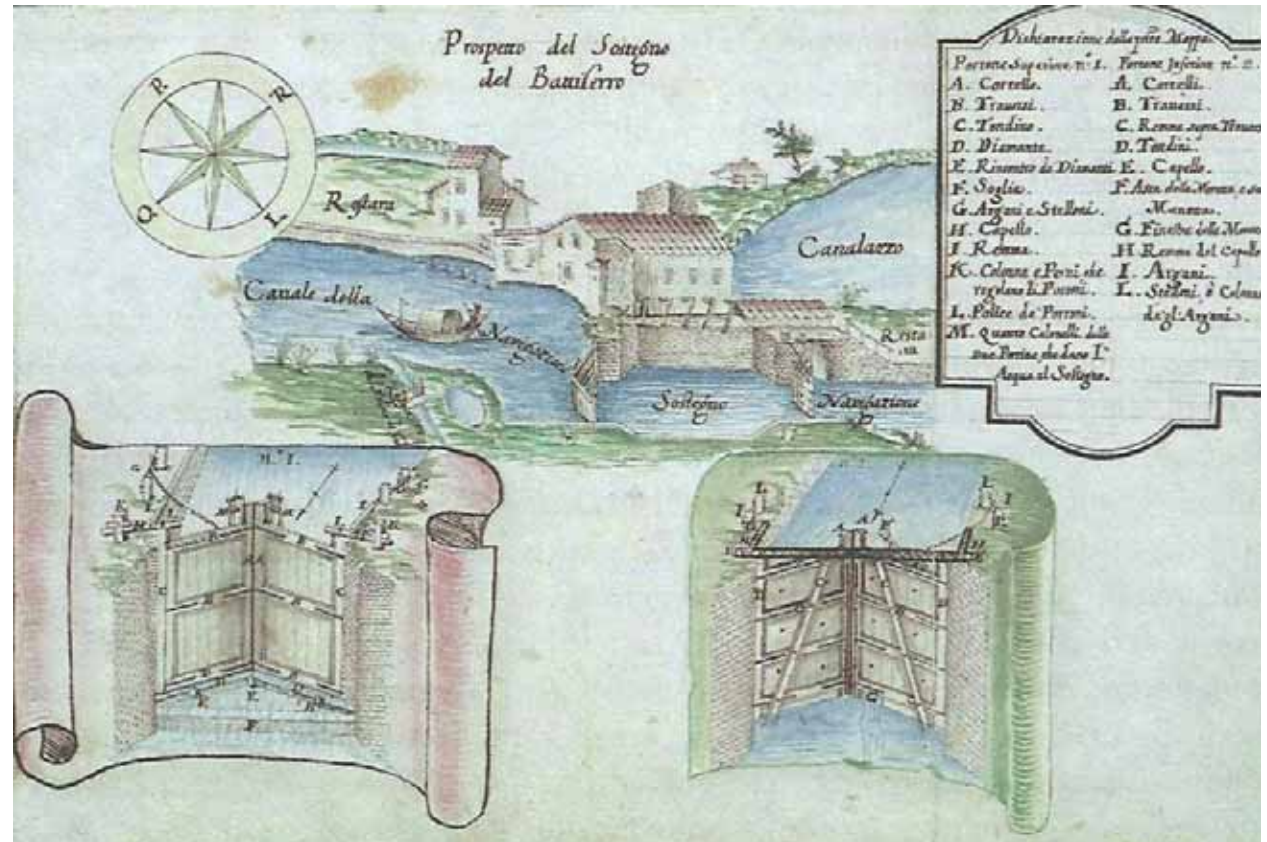 Prospetto del Sostegno
del Battiferro
R
R
Q
L
Restara
Canale della
Navigazione
Canalazzo
Resta
ra
Sostegno
Navigazione
Dichiarazione della pñte Mappa
Portone Superiore n.º 1.
A. Cortello.
B. Trauersi.
C. Tendino.
D. Diamante.
E. Rincontro de Diamanti.
F. Soglia.
G. Argani e Stelloni.
H. Capello.
I. Remma.
K. Colonne e Perzi che
regolano li Portoni.
L. Police de Portoni.
M. Quattro Colonelli delle
due Portine, che dano L'
Acqua al Sostegno.
Portone Inferiore n.º 2.
A. Cortelli.
B. Trauersi.
C. Remma sopra
D. Tendini.
E. Capello.
F. Asta della
G. Finestre delle
H. Remma del Capello
I. Argani.
L. Stelloni, ò Colonne
degl'Argani.
n.º 1.